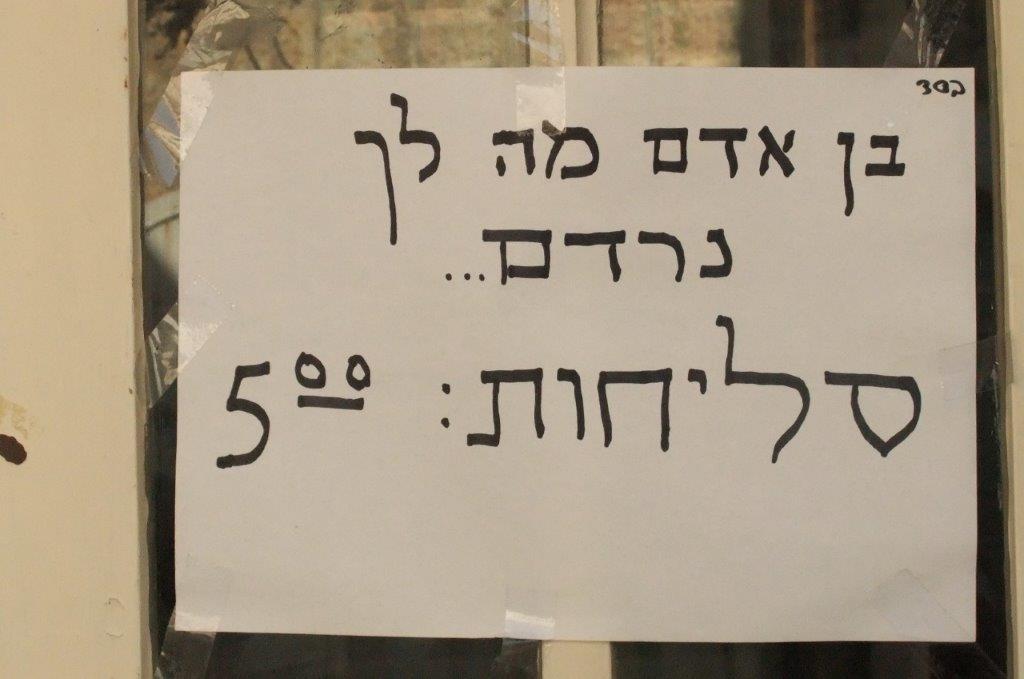 בסד
בן אדם מה לך
נרדם...
סליחות: 5⁰⁰